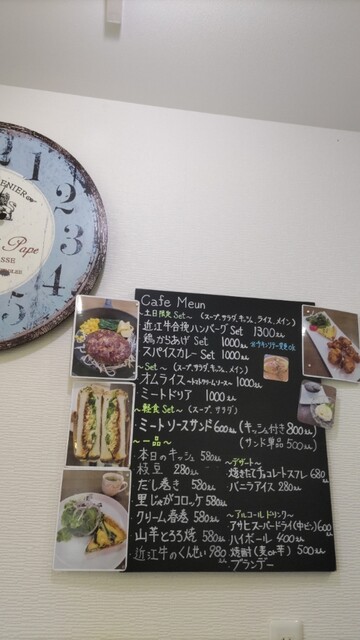 1
2
3
4
5
ENIER
Pape
Cafe Meun
～土日限定 Set～ (スープ、サラダ、キッシュ、ライス、メイン)
近江牛合挽ハンバーグ Set 1300えん
鶏からあげ Set 1000えん
スパイスカレー Set 1000えん
～Set～ (スープ、サラダ、キッシュ、メイン)
オムライス 1000えん
ミートドリア 1000えん
～軽食 Set～ (スープ、サラダ)
・ミートソースサンド 600えん (キッシュ付き 800えん)
(サンド単品 500えん)
～一品～
本日のキッシュ 580えん
枝豆 280えん
だし巻き 580えん
里じゃがコロッケ 580えん
クリーム春巻 580えん
山芋とろろ焼 580えん
・近江牛のくんせい 980えん
～デザート～
・焼きたてチョコレートスフレ 680えん
・バニラアイス 280えん
～アルコールドリンク～
・アサヒスーパードライ(中ビン) 600えん
・ハイボール 400えん
・焼酎(麦or芋) 500えん
・ブランデー